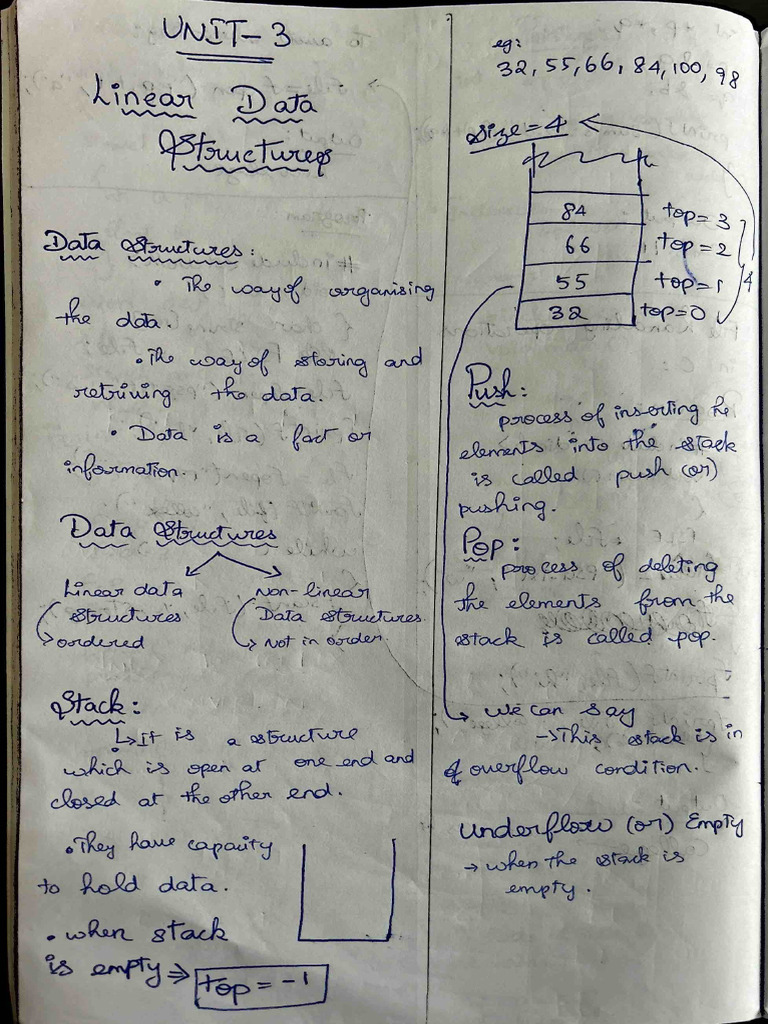 UNIT-3
Linear Data
Structures
Data Structures:
• The way of organising
the data.
• The way of storing and
retrining the data.
• Data is a fact or
information.
Data Structures
Linear data
structures
→ ordered
non-linear
Data structures.
→ Not in order.
Stack:
↳ It is a structure
which is open at one end and
closed at the other end.
• They have capacity
to hold data.
• when stack
is empty ⇒ top = -1
eg:
32, 55, 66, 84, 100, 98
size = 4
84 top = 3
66 top = 2
55 top = 1
32 top = 0
4
Push:
process of inserting he
elements into the stack
is called push (or)
pushing.
Pop:
process of deleting
the elements from the
stack is called pop.
→ we can say
→ This stack is in
of overflow condition.
underflow (or) Empty
→ when the stack is
empty.